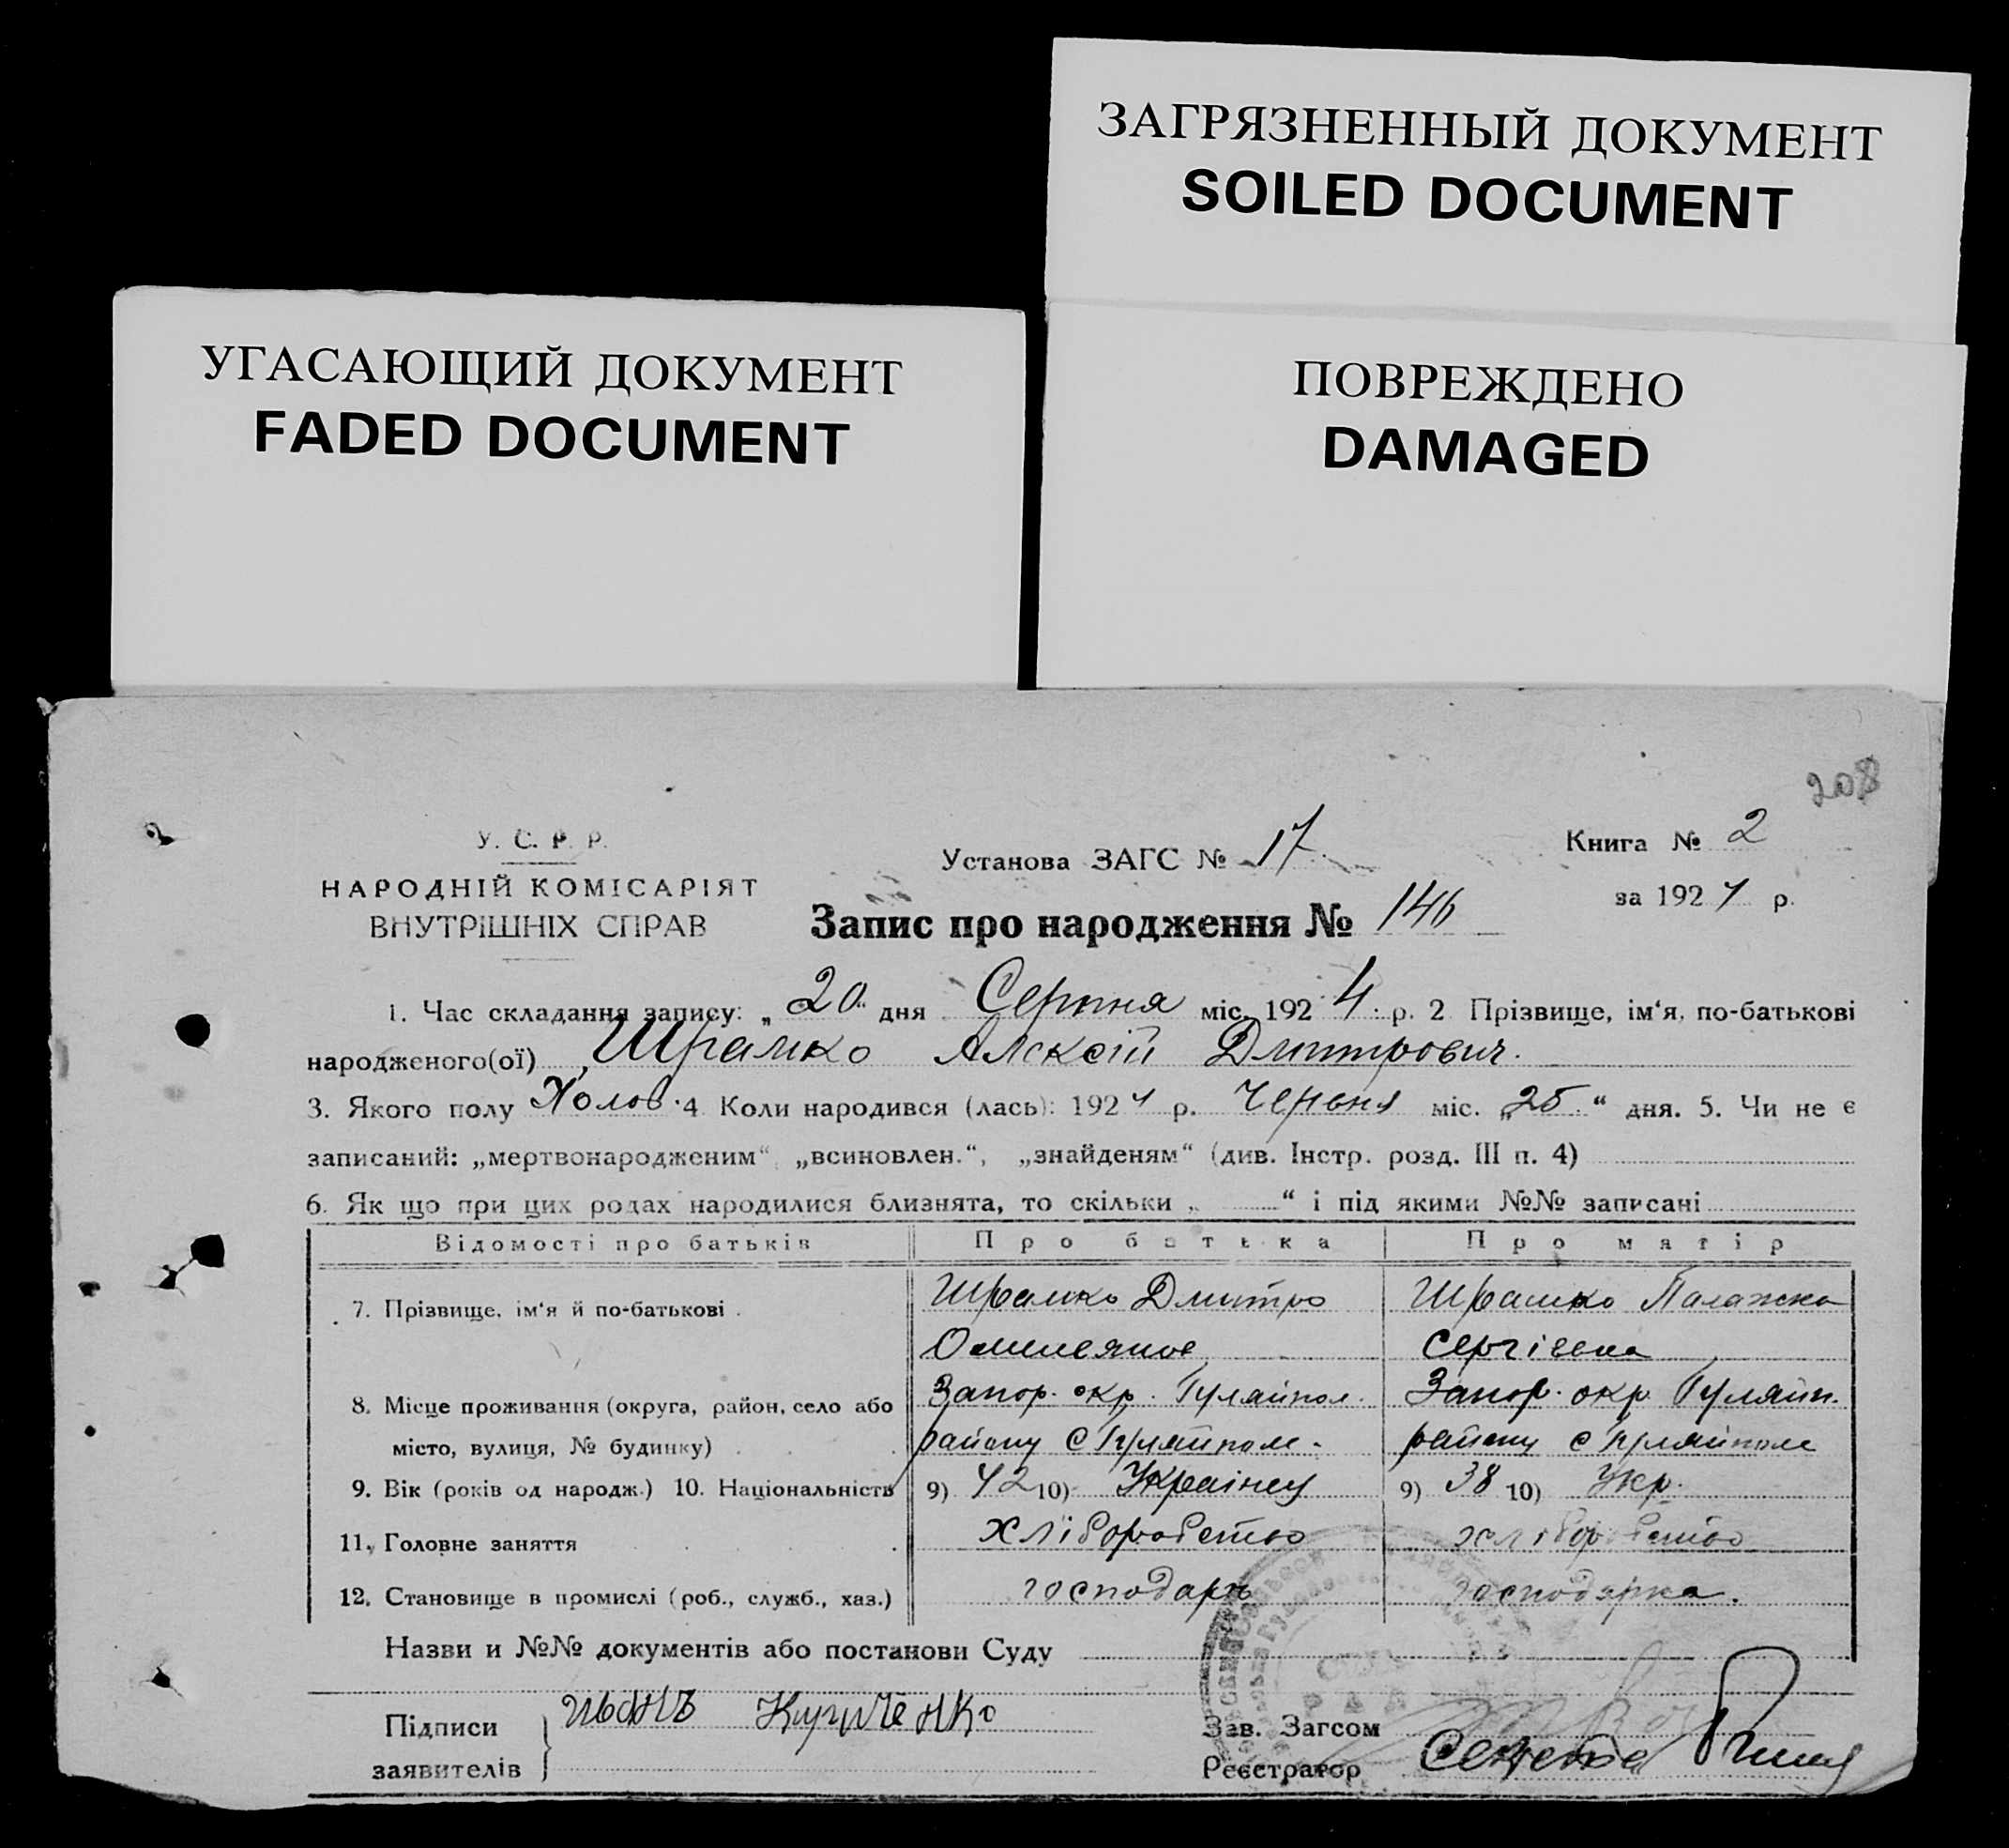 ЗАГРЯЗНЕННЫЙ ДОКУМЕНТ
SOILED DOCUMENT
УГАСАЮЩИЙ ДОКУМЕНТ
FADED DOCUMENT
ПОВРЕЖДЕНО
DAMAGED
208
У. С. Р. Р.
НАРОДНІЙ КОМІСАРІЯТ
ВНУТРІШНІХ СПРАВ
Установа ЗАГС № 17
Книга № 2
за 1924 р.
Запис про народження № 146
1. Час складання запису: „20“ дня Серпня міс. 1924 р. 2 Прізвище, ім‘я, по-батькові
народженого(ої) Шрамко Алексій Дмитрович.
3. Якого полу Холов. 4 Коли народився (лась): 1924 р. Червня міс. „25“ дня. 5. Чи не є
записаний: „мертвонародженим“, „всиновлен.“, „знайденям“ (див. Інстр. розд. III п. 4)
6. Як що при цих родах народилися близнята, то скільки „ “ і під якими №№ записані
Відомості про батьків Про батька Про матір
7. Прізвище, ім‘я й по-батькові . Шрамко Дмитро Шрамко Палажка
Омелянов Сергієвна
8. Місце проживання (округа, район, село або Запор. окр. Гуляйпол. Запор. окр. Гуляйп.
місто, вулиця, № будинку) району с Гуляйполе. району с Гуляйполе
9. Вік (років од народж.) 10. Національність 9) 42 10) Українец 9) 38 10) Укр.
11. Головне заняття хліборобство хліборобство
12. Становище в промислі (роб., служб., хаз.) господарь господарка.
Назви и №№ документів або постанови Суду
Підписи
заявителів
Иванъ
Зав. Загсом
Реєстратор